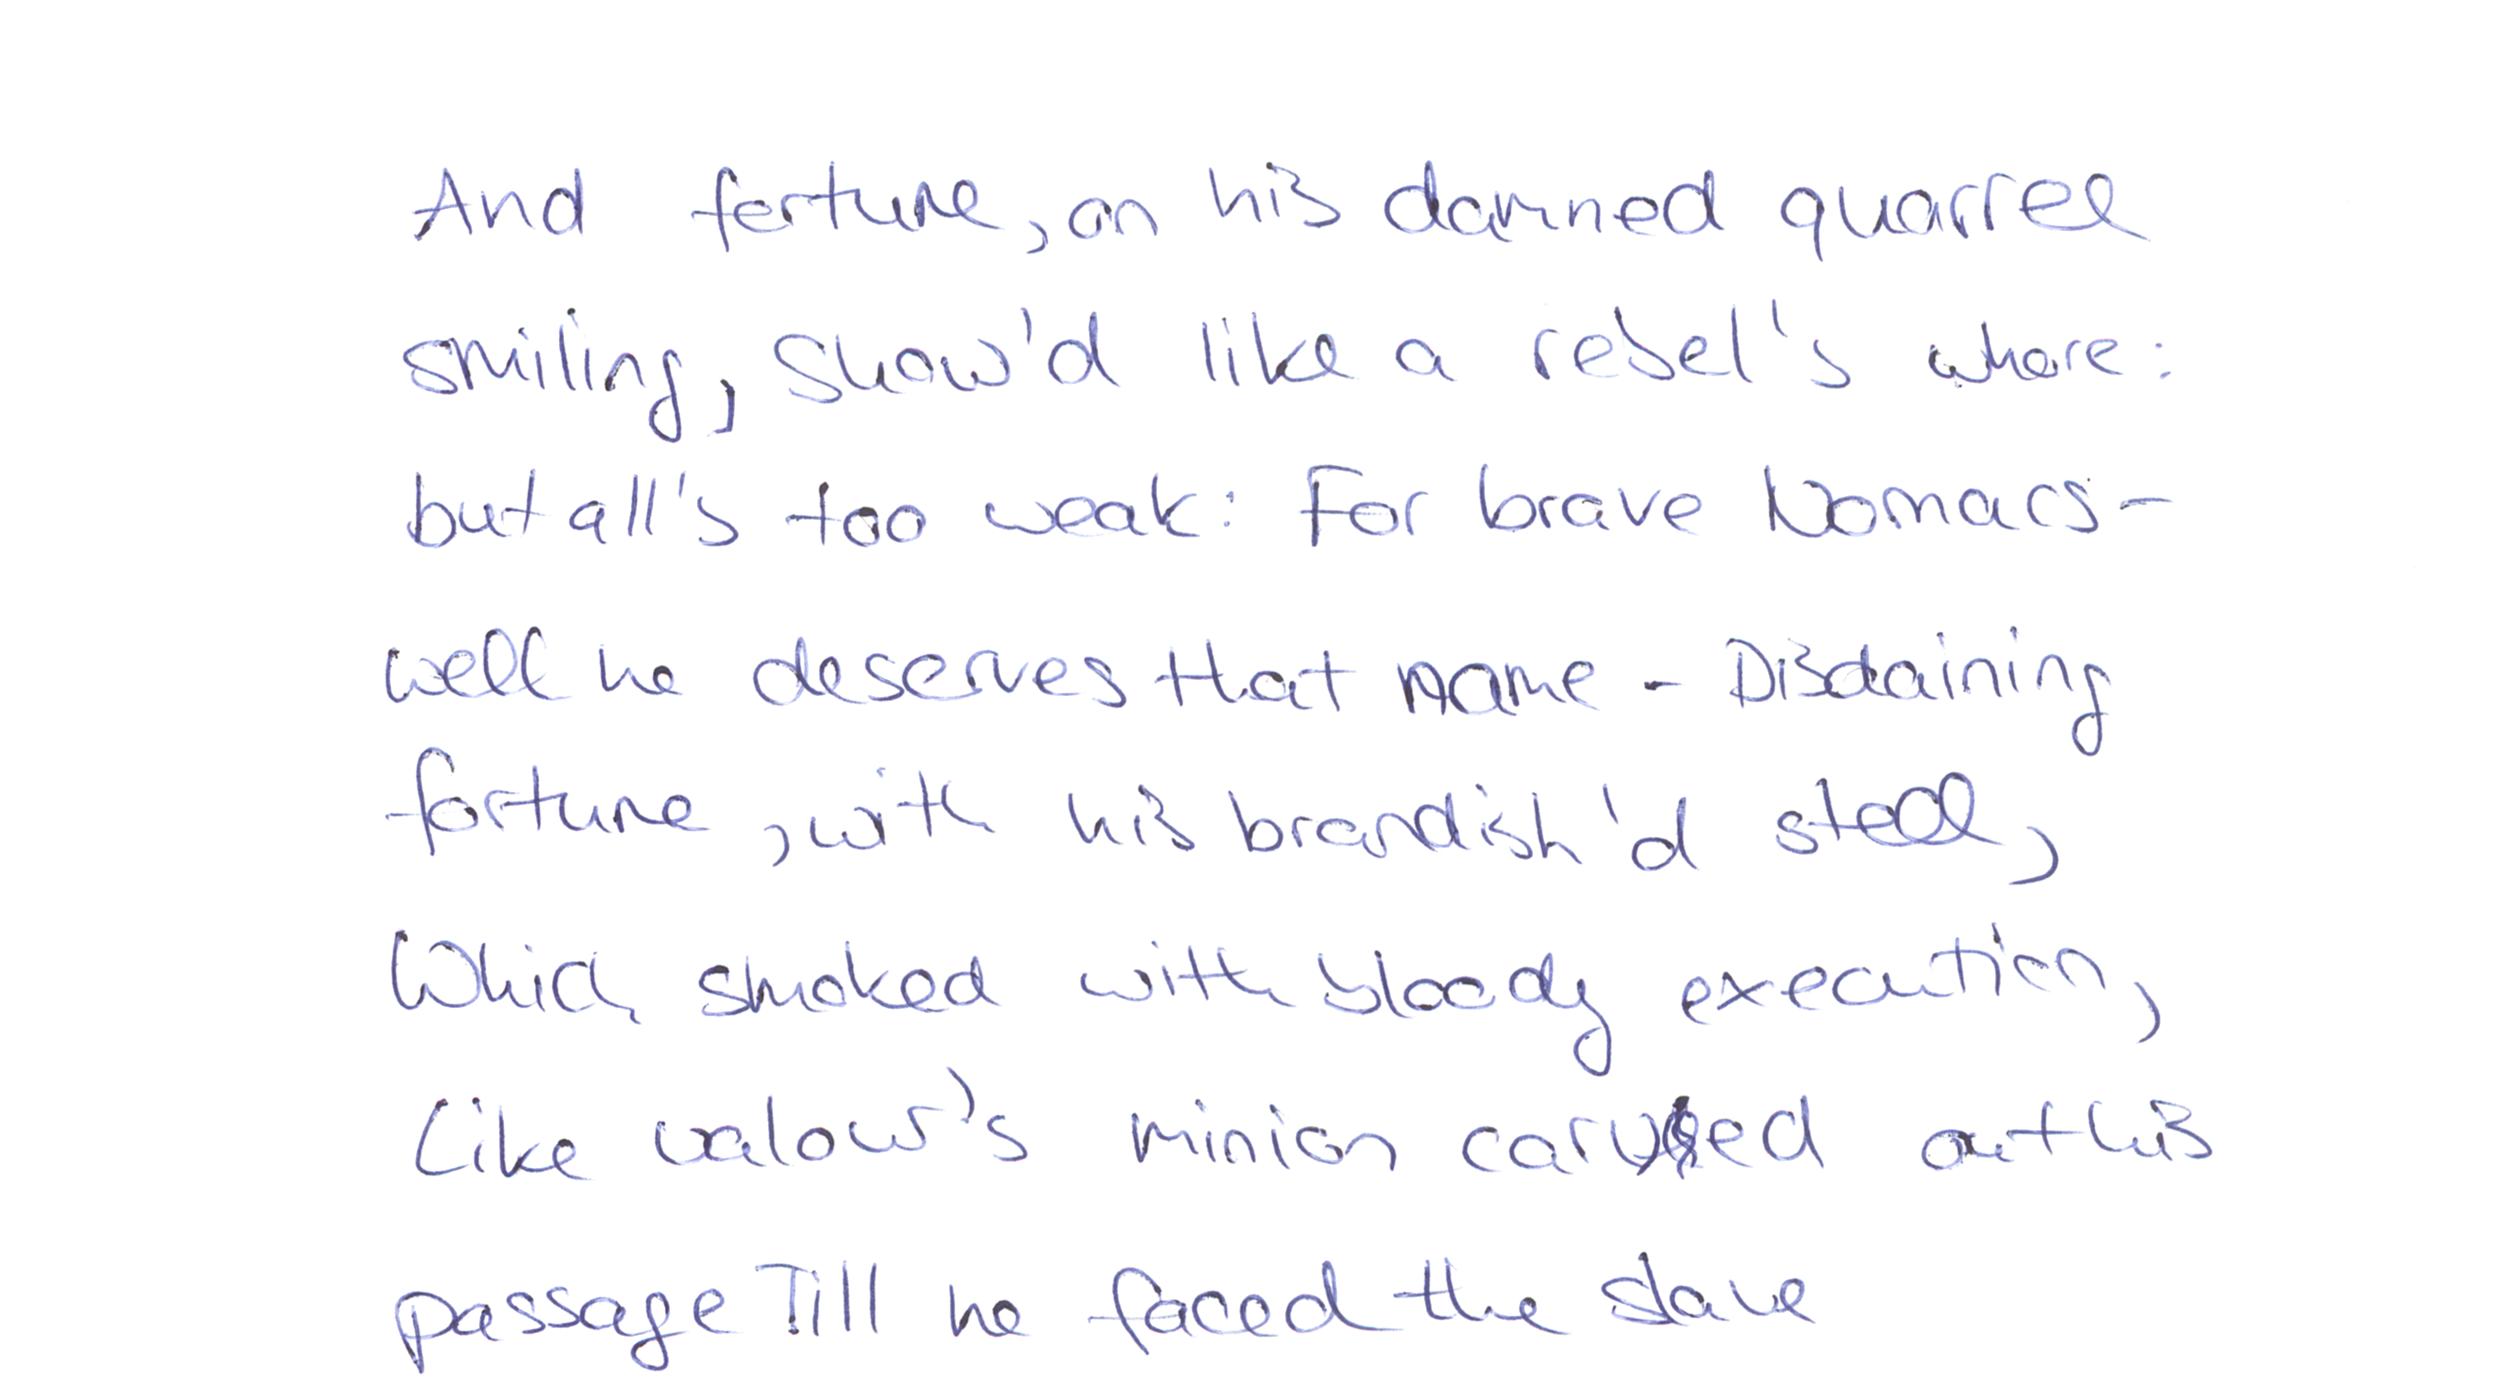 And fortune, on his damned quarrel
smiling, Show'd like a rebel's whore:
but all's too weak: For brave Nomacs-
well he deserves that name - Disdaining
fortune, with his brandish'd steel,
Which smoked with bloody execution,
Like valour's minion carved out his
passage Till he faced the slave